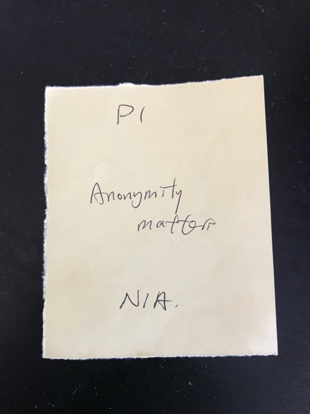 P1
Anonymity
matters
NIA.